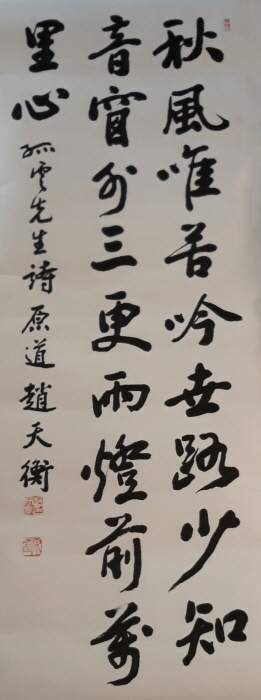 秋風唯苦吟世路少知
音窗外三更雨燈前萬
里心
孤雲先生詩 原道 趙天衡